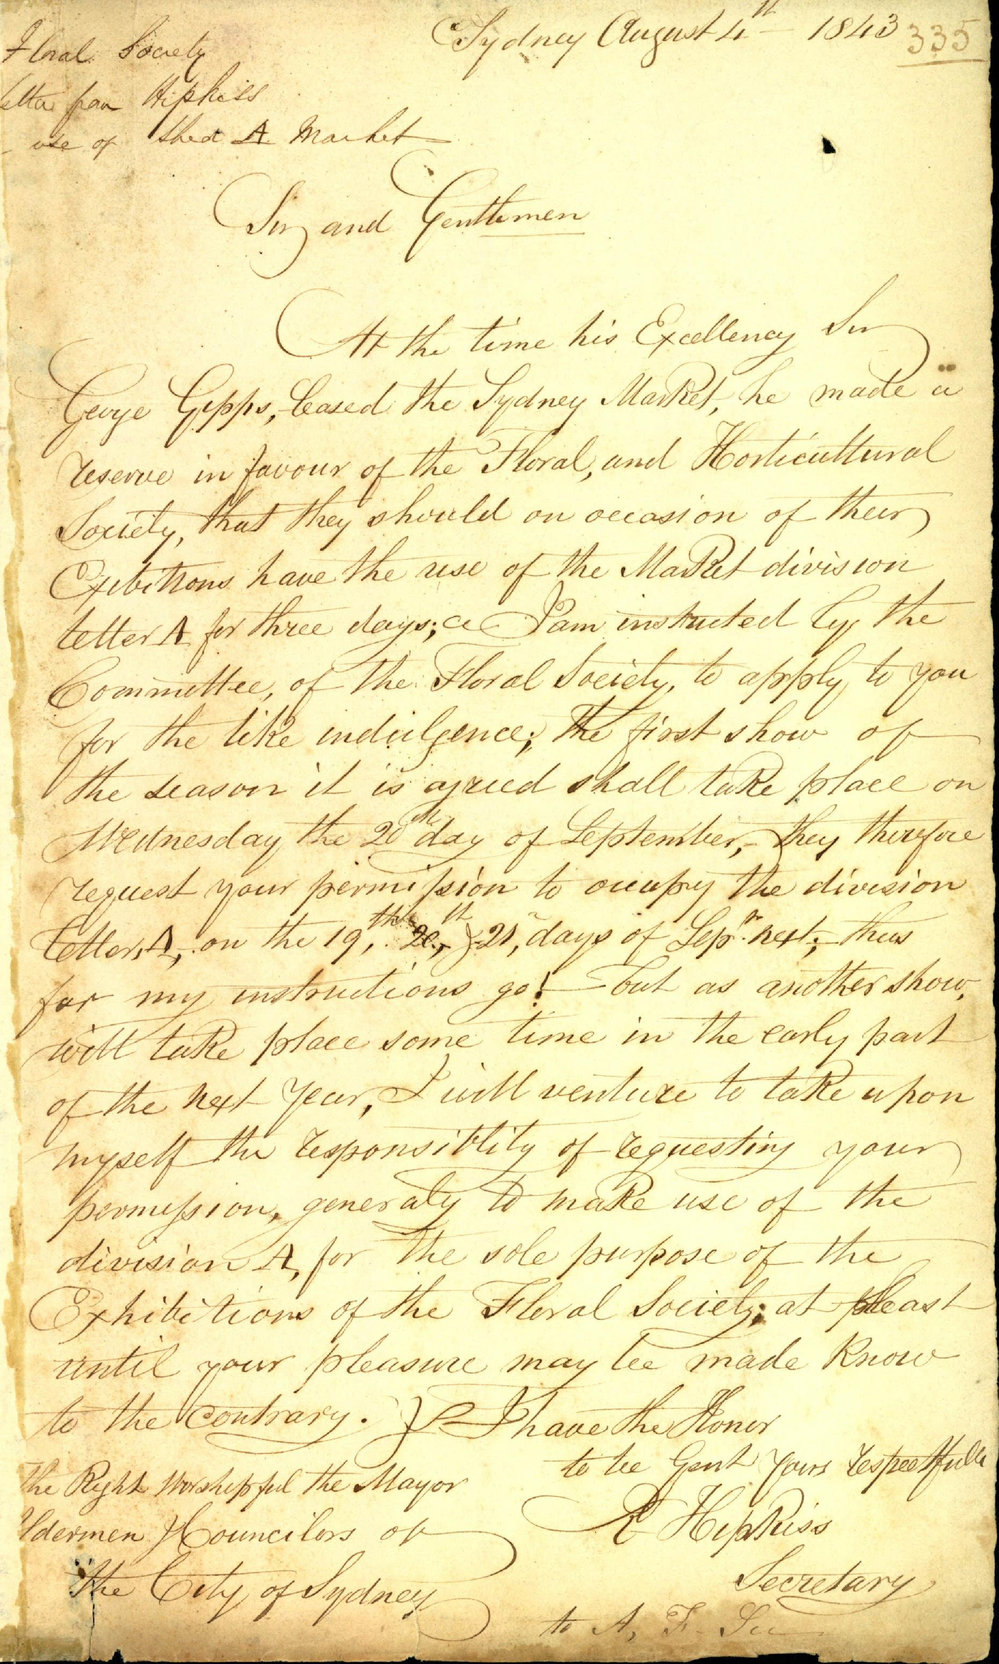 Sydney August 4th 1843
335
Floral Society
Letter from Hipkiss
use of Shed A Market
Sir and Gentlemen
At the time his Excellency Sir
George Gipps, leased the Sydney Market, he made a
reserve in favour of the Floral, and Horticultural
Society, that they should on occasion of their
Exibitions have the use of the Market division
letter A for three days; & I am instructed by the
Committee, of the Floral Society, to apply to you
for the like indulgence; the first show of
the season it is agreed shall take place on
Wednesday the 20th day of September, they therefore
request your permission to occupy the division
letter, A, on the 19th, 20th, & 21, days of Sepr. next; thus
far my instructions go! but as another show,
will take place some time in the early part
of the next Year, I will venture to take upon
myself the responsiblity of requesting your
permission, generaly to make use of the
division A, for the sole purpose of the
Exhibitions of the Floral Society; at least
until your pleasure may be made know
to the contrary. I have the Honor
to be Gent Yours respectfully
R Hipkiss
Secretary
The Right Worshipful the Mayor
Aldermen & Councilors of
the City of Sydney
to A. F.